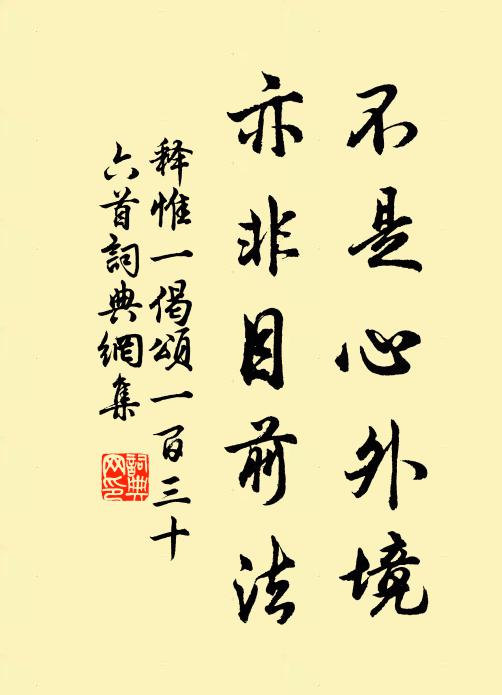 不是心外境
亦非目前法
释惟一偈頌一百三十
六首詞典網集
詞典
网印